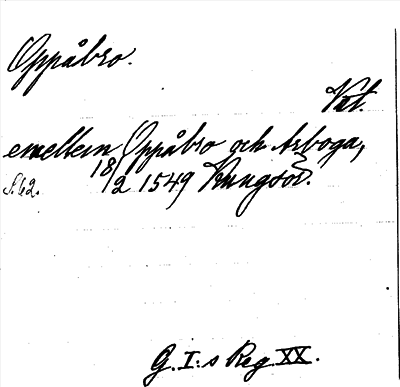 Oppåbro.
Vat.
emellem Oppåbro och Arboga,
S. 62. 18/2 1549 Kungsör.
G. I:s Reg XX.